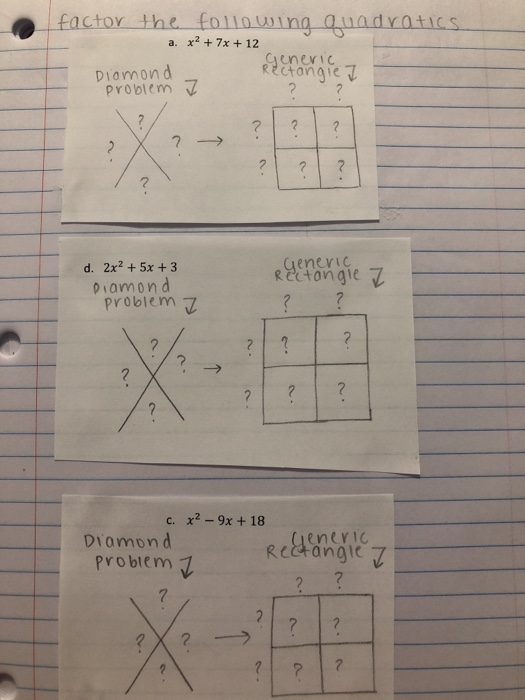 factor the following quadratics
a. x² + 7x + 12
Diamond
problem
Generic
Rectangle
? ?
? ? ? ?
? ? ?
? ? ?
d. 2x² + 5x + 3
Diamond
problem
Generic
Rectangle
? ?
? ? ? ?
? ? ?
? ? ?
c. x² – 9x + 18
Diamond
problem
Generic
Rectangle
? ?
? ? ? ?
? ? ?
? ? ?